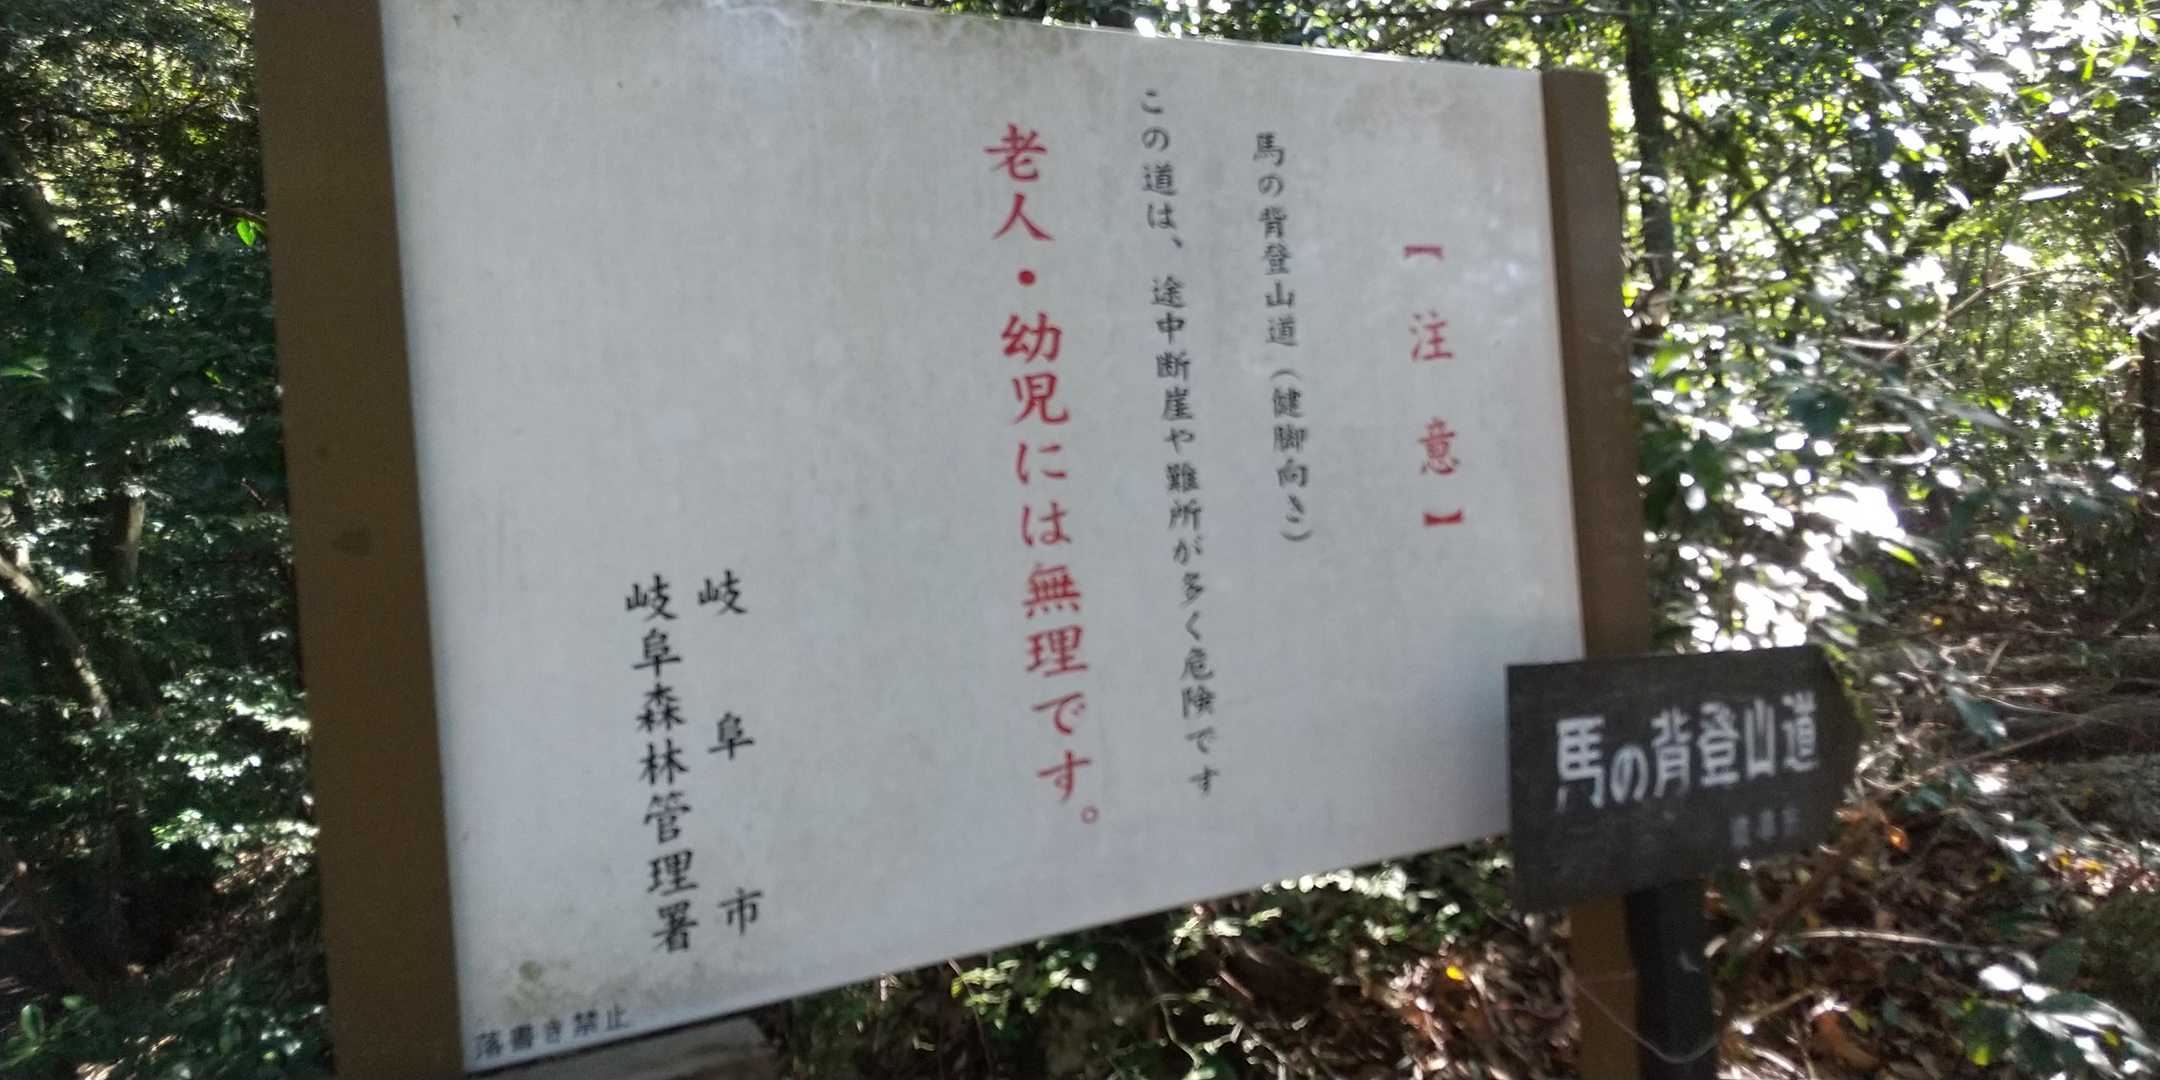 【注意】
馬の背登山道（健脚向き）
この道は、途中断崖や難所が多く危険です
老人・幼児には無理です。
岐阜市
岐阜森林管理署
落書き禁止
馬の背登山道